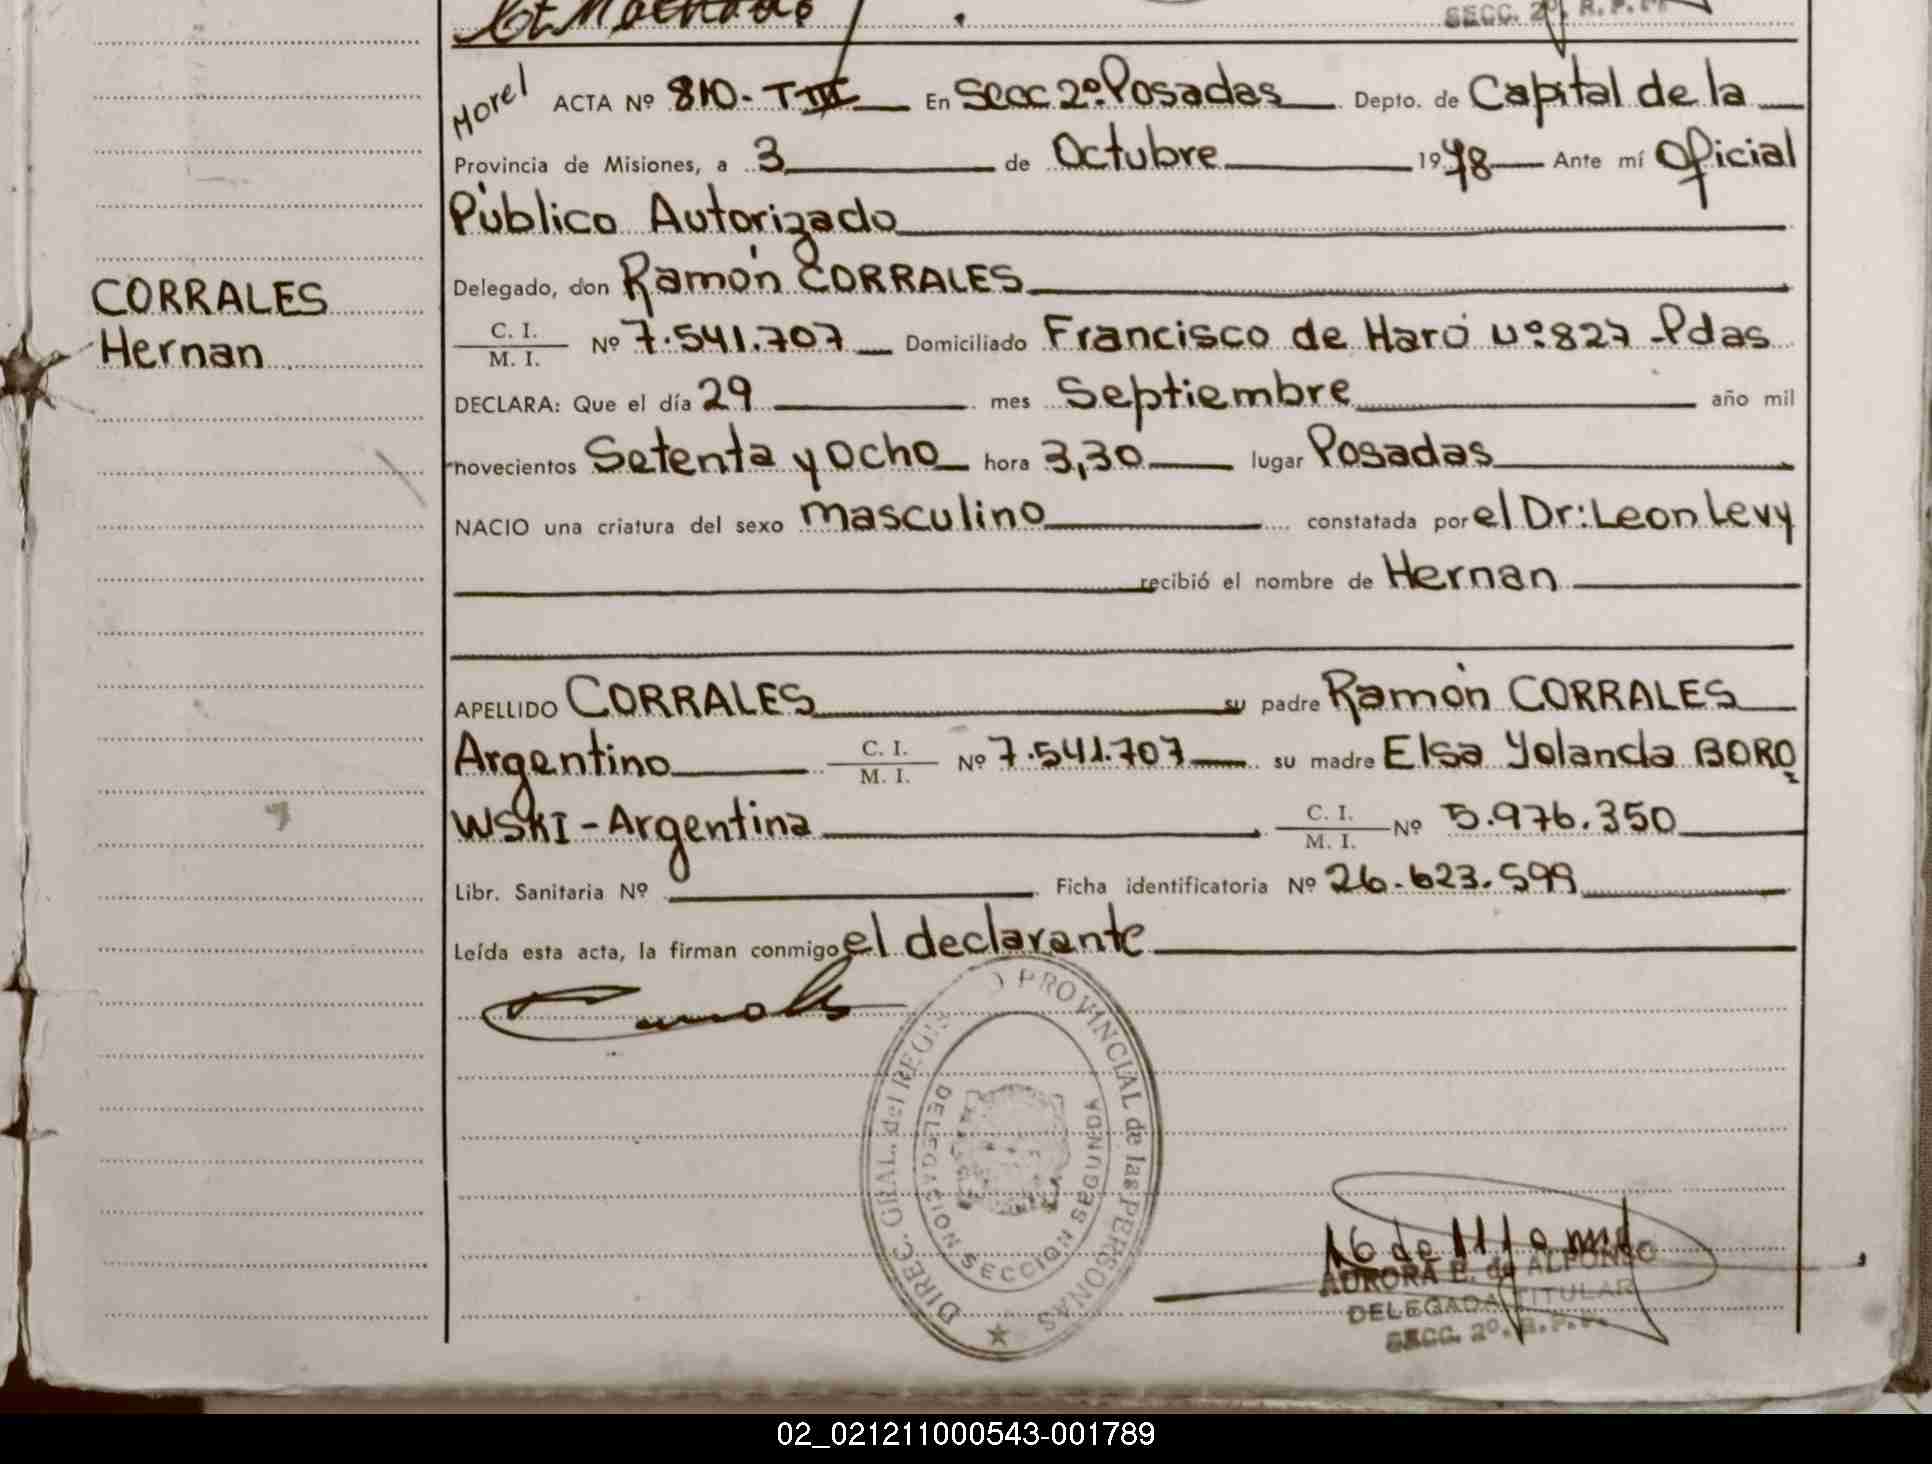 SECC. 2º. R. P. P.
Morel
ACTA Nº 810- T III En Secc 2º Posadas Depto. de Capital de la
Provincia de Misiones, a 3 de Octubre 1978 Ante mí Oficial
Público Autorizado
Delegado, don Ramón CORRALES
CORRALES
Hernan
C. I.
M. I. Nº 7.541.707 Domiciliado Francisco de Haro Nº 827 - Pdas
DECLARA: Que el día 29 mes Septiembre año mil
novecientos Setenta y Ocho hora 3,30 lugar Posadas
NACIO una criatura del sexo masculino constatada por el Dr: Leon Levy
recibió el nombre de Hernan
APELLIDO CORRALES su padre Ramón CORRALES
Argentino C. I. M. I. Nº 7.541.707 su madre Elsa Yolanda BORO
WSKI - Argentina C. I. M. I. Nº 5.976.350
Libr. Sanitaria Nº Ficha identificatoria Nº 26.623.599
Leída esta acta, la firman conmigo el declarante
DIREC. GRAL. del REGIS O PROVINCIAL de las PERSONAS
DELEGACION SECCION SEGUNDA
AURORA E. de ALFONSO
DELEGADA TITULAR
SECC. 2º. R. P. P.
02_021211000543-001789